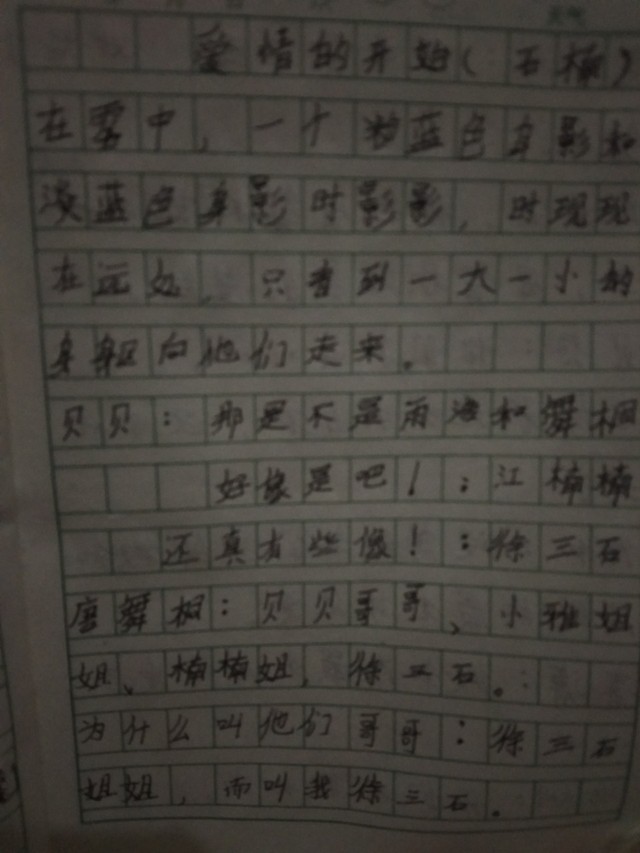 爱情的开始（石楠）
在雾中，一个粉蓝色身影和
淡蓝色身影时影影，时现现
在远处，只看到一大一小的
身躯向他们走来。
贝贝：那是不是雨浩和舞桐
好像是吧！：江楠楠
还真有些像！：徐三石
唐舞桐：贝贝哥哥、小雅姐
姐、楠楠姐，徐三石。：
为什么叫他们哥哥：徐三石
姐姐，而叫我徐三石。